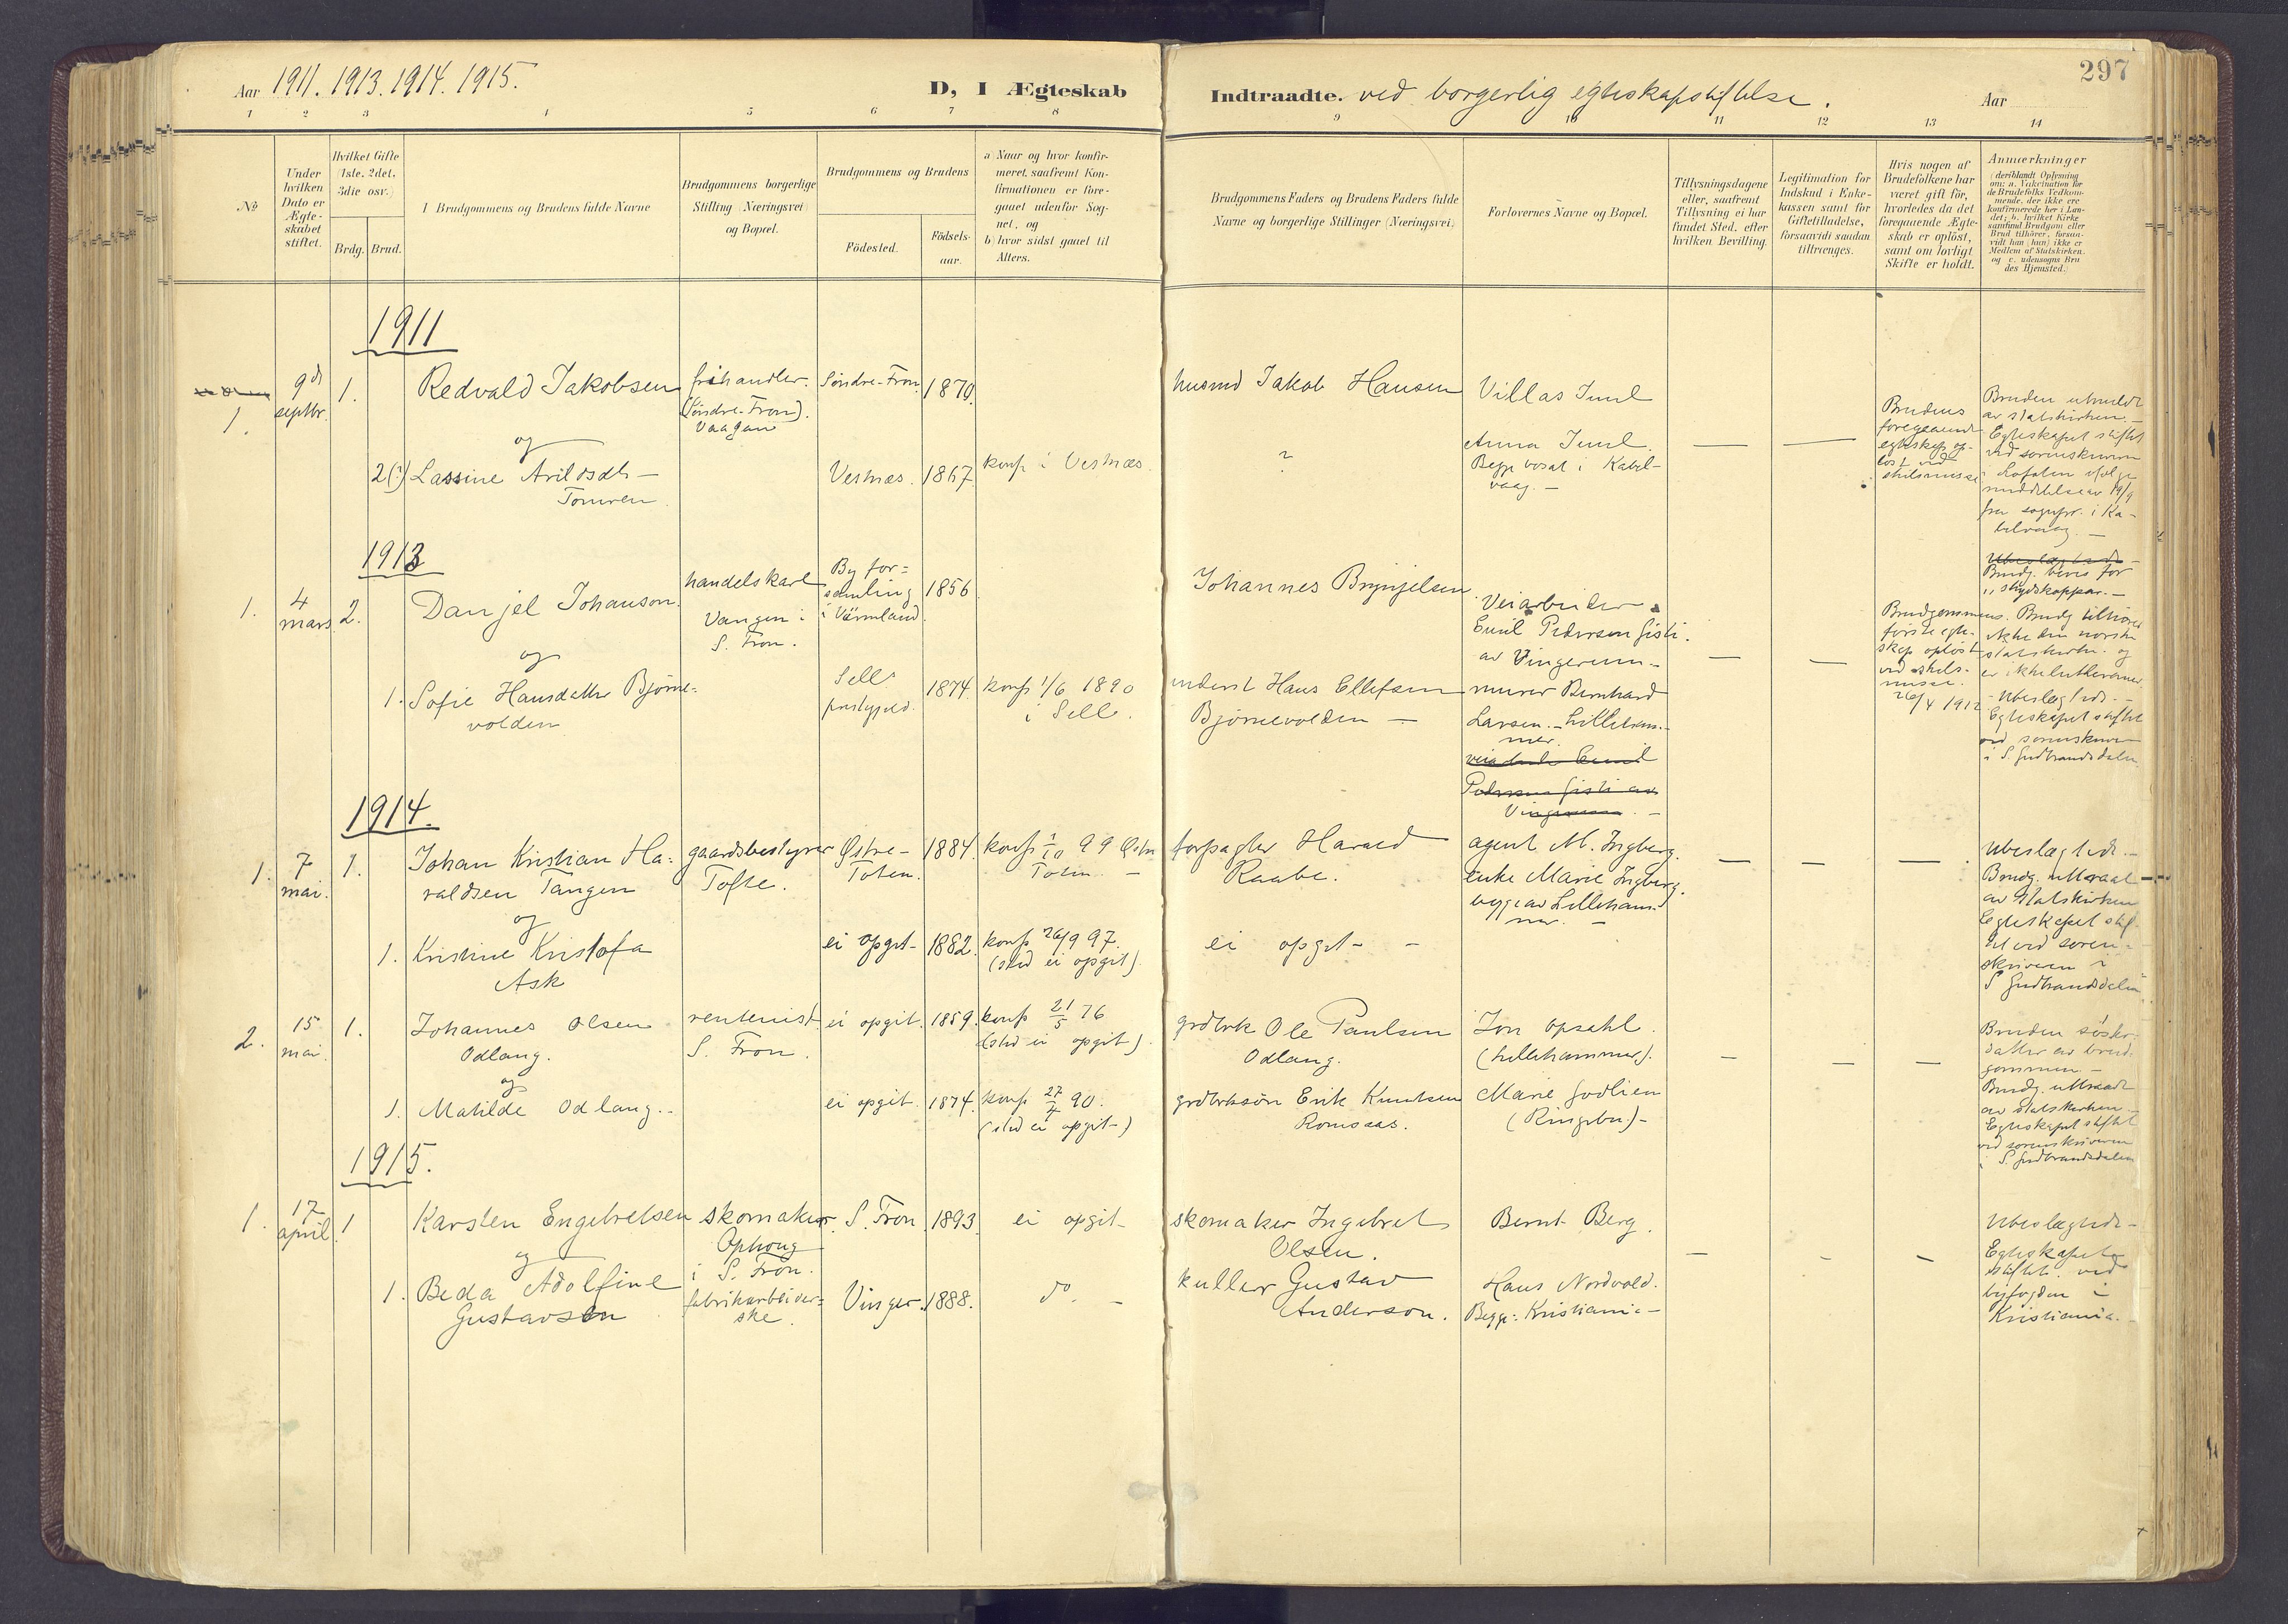 297
Aar 1911. 1913. 1914. 1915.
D, I Ægteskab
Indtraadte. ved borgerlig egteskapstiftelse.
Aar
1 2 3 4 5 6 7 8 9 10 11 12 13 14
No
Under
hvilken
Dato er
Ægte-
skabet
stiftet.
Hvilket Gifte
(1ste, 2det,
3die osv.)
Brdg. Brud.
1 Brudgommens og Brudens fulde Navne
Brudgommens borgerlige
Stilling (Næringsvei)
og Bopæl.
Brudgommens og Brudens
Födested.
Födsels-
aar.
a) Naar og hvor konfir-
meret, saafremt Kon-
firmationen er fore-
gaaet udenfor Sog-
net, og
b) hvor sidst gaaet til
Alters.
Brudgommens Faders og Brudens Faders fulde
Navne og borgerlige Stillinger (Næringsvei)
Forlovernes Navne og Bopæl.
Tillysningsdagene
eller, saafremt
Tillysning ei har
fundet Sted, efter
hvilken Bevilling.
Legitimation for
Indskud i Enke-
kassen samt for
Giftetilladelse,
forsaavidt saadan
tiltrænges.
Hvis nogen af
Brudefolkene har
været gift för,
hvorledes da det
foregaaende Ægte-
skab er oplöst,
samt om lovligt
Skifte er holdt.
Anmærkninger
(deriblandt Oplysning
om: a. Vakcination for
de Brudefolks Vedkom-
mende, der ikke ere
konfirmerede her i Lan-
det; b. hvilket Kirke
samfund Brudgom eller
Brud tilhörer, forsaa-
vidt han (hun) ikke er
Medlem af Statskirken,
og c. udensogns Bru
des Hjemsted.)
1911
1.
9d
septbr.
1.
Redvald Jakobsen
frihandler.
(Söndre-Fron).
Vaagan
Söndre-Fron
1870.
husmd Jakob Hansen
Villas Juul
og
2(?) Lassine Arildsdtr
Tomren
Vestnæs.
1867
konf i Vestnæs.
?
Anna Juul.
Begge bosat i Kabel-
vaag. -
Brudens
foregaaende
egteskap op-
löst ved
skilsmisse
Bruden utmeldt
av statskirken. -
Egteskapet stiftet
ved sorenskriveren
i Lofoten ifølge
meddelelse av 19/9
fra sognepr. i Ka-
belvaag. -
1913
1.
4
mars
2.
Danjel Johanson.
handelskarl
Vangen i
S. Fron.
By for=
samling
i Värmland.
1856
Johannes Brynjelsen.
Veiarbeider
Emil Pedersen Gisti.
av Vingerum-
og
1. Sofie Hansdatter Bjørne-
volden
Sells
prestegjeld.
1874.
konf 1/6 1890
i Sell.
inderst Hans Ellefsen
Bjørnevolden -
murer Bernhard
Larsen. - Lilleham-
mer.
Brudgommens
første egte-
skap opløst
ved skils-
misse.
26/4 1912
Brudg. bevis for
skydskopper. -
Brudg tilhører
ikke den norske
statskirke. og
er ikke lutheraner
- Ubeslegtede. -
Egteskapet stiftet
ved sorenskriver
i S. Gudbrandsdalen.
1914.
1.
7
mai.
1.
Johan Kristian Ha-
raldsen Tangen
gaardsbestyrer
Tofte.
Østre-
Toten.
1884.
konf 1/10 99 Østre
Toten. -
forpagter Harald
Raabe.
agent M. Ingberg.
enke Marie Ingberg.
begge av Lilleham-
mer. -
og
1. Kristine Kristofa
Ask
ei opgit-
1882.
konf 26/9 97.
(sted ei opgit)
ei opgit - -
Ubeslegtede. -
Brudg. uttraadt
av statskirken
Egteskapet stif-
tet ved soren-
skriveren i
S Gudbrandsdalen
2.
15
mai
1.
Johannes Olsen
Odlang.
rentenist
S. Fron.
ei opgit.
1859.
konf 21/5 76
(sted ei opgit).
grdbrk Ole Paulsen
Odlang.
Jon Opsahl.
(Lillehammer).
og
1. Matilde Odlang..
ei opgit.
1874.
konf 27/4 90.
(sted ei opgit-)
grdbrksön Erik Knutsen
Romsaas.
Marie Godlien
(Ringebu)-
Bruden söster-
datter av brud-
gommen. -
Brudg. uttraadt
av statskirken. -
Egteskapet stiftet
ved sorenskriveren
i S. Gudbrandsdalen
1915.
1.
17
april.
1
Karsten Engebretsen
skomaker.
Ophoug
i S. Fron.
S. Fron.
1893.
ei opgit-
skomaker Ingebret
Olsen.
Bernt Berg.
og
1. Beda Adolfine
Gustavsen
fabrikarbeider=
ske.
Vinger.
1888.
do. -
kuller Gustav
Anderson.
Hans Nordvold.
Begge: Kristiania-
Ubeslegtede -
Egteskapet
stiftet. ved
byfogden i
Kristiania.